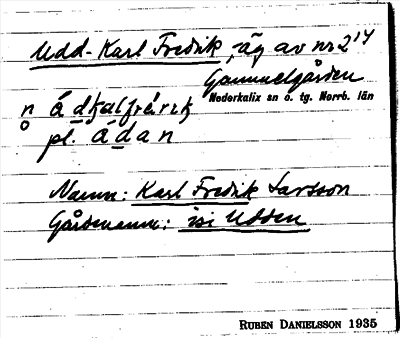 Udd-Karl Fredrik, äg av nr 2¹⁴
Gammelgården
Nederkalix sn o. tg. Norrb. län
n ádkalfrárɩk
o pl. ádan
Namn: Karl Fredrik Larsson
Gårdsnamn: isi Udden
RUBEN DANIELSSON 1935